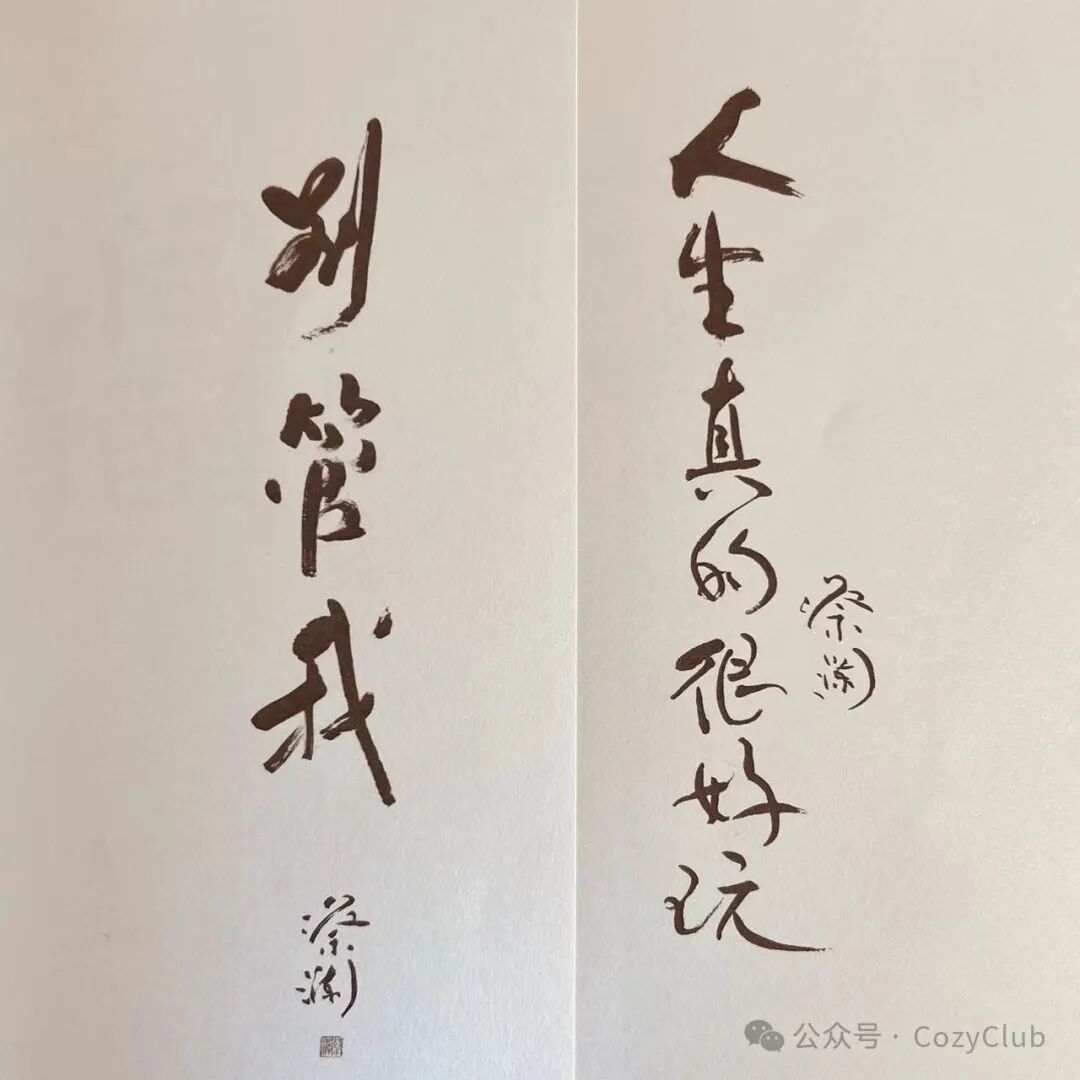 别管我
蔡澜
人生真的很好玩
蔡澜
公众号 · CozyClub